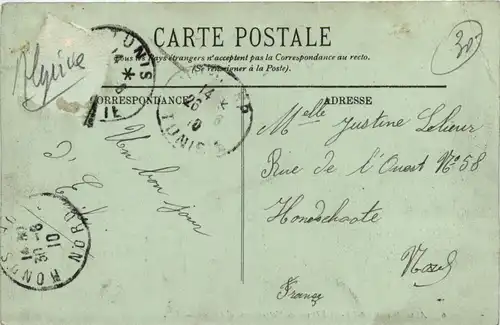 CARTE POSTALE
Tous les Pays étrangers n'acceptent pas la Correspondance au recto.
(Se renseigner à la Poste).
CORRESPONDANCE
ADRESSE
Algérie
TUNIS
14 * 6
14 *
26 6
10
TUNIS
HONDSCHOOTE NORD
14
30 -6
10
30
Un bon jour
d'
Melle Justine Lelieur
Rue de l'Ouest No 58
Hondschoote
Nord
France